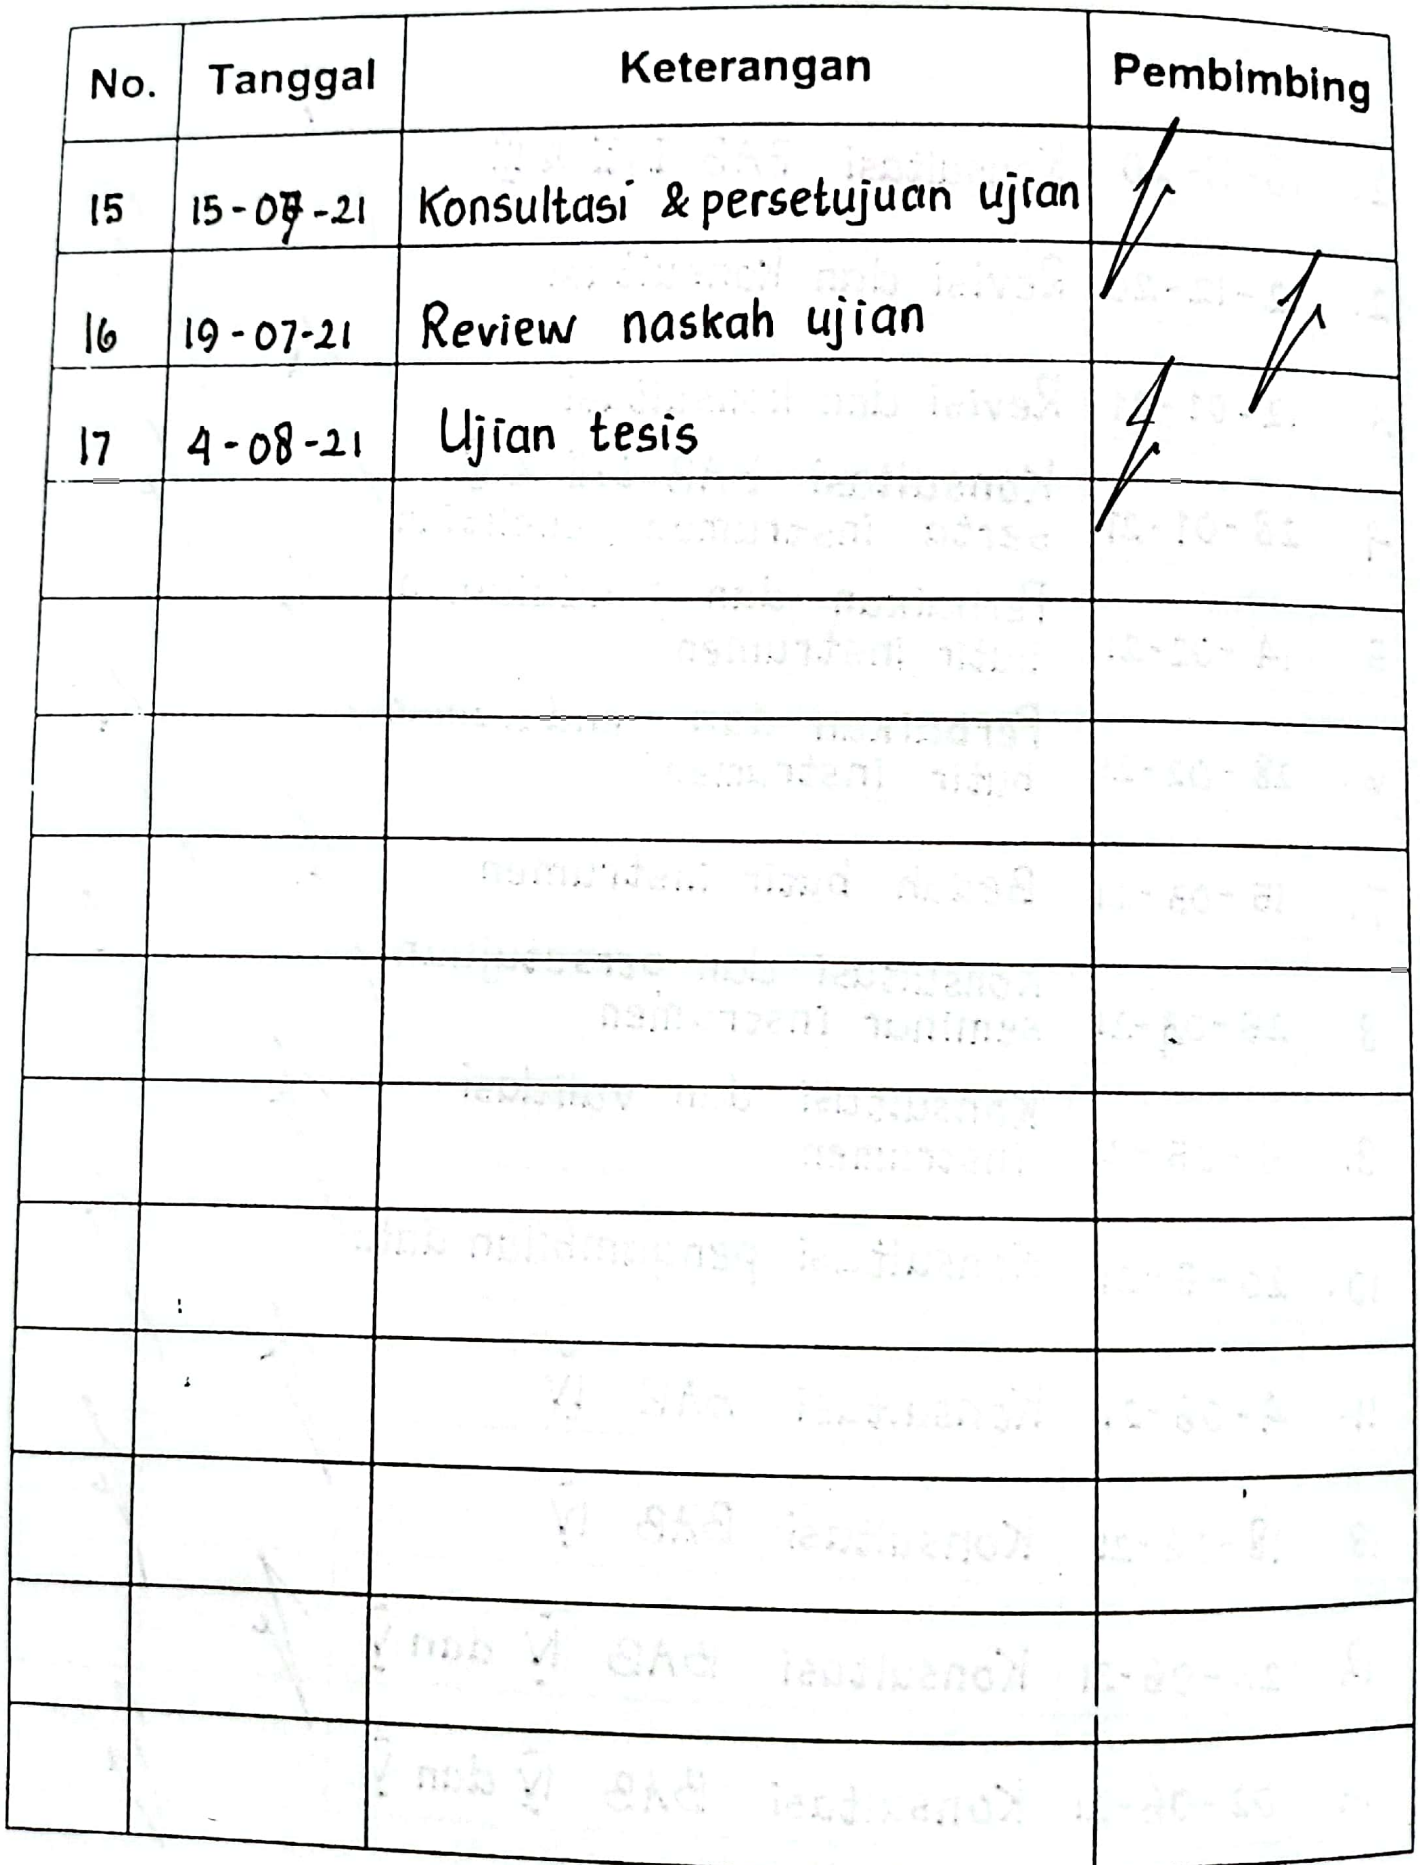 No. Tanggal Keterangan Pembimbing
15 15-07-21 Konsultasi & persetujuan ujian
16 19-07-21 Review naskah ujian
17 4-08-21 Ujian tesis